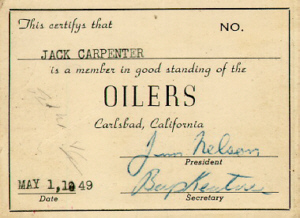 This certifys that
NO.
JACK CARPENTER
is a member in good standing of the
OILERS
Carlsbad, California
Jim Nelson
President
MAY 1, 1949
Date
Secretary